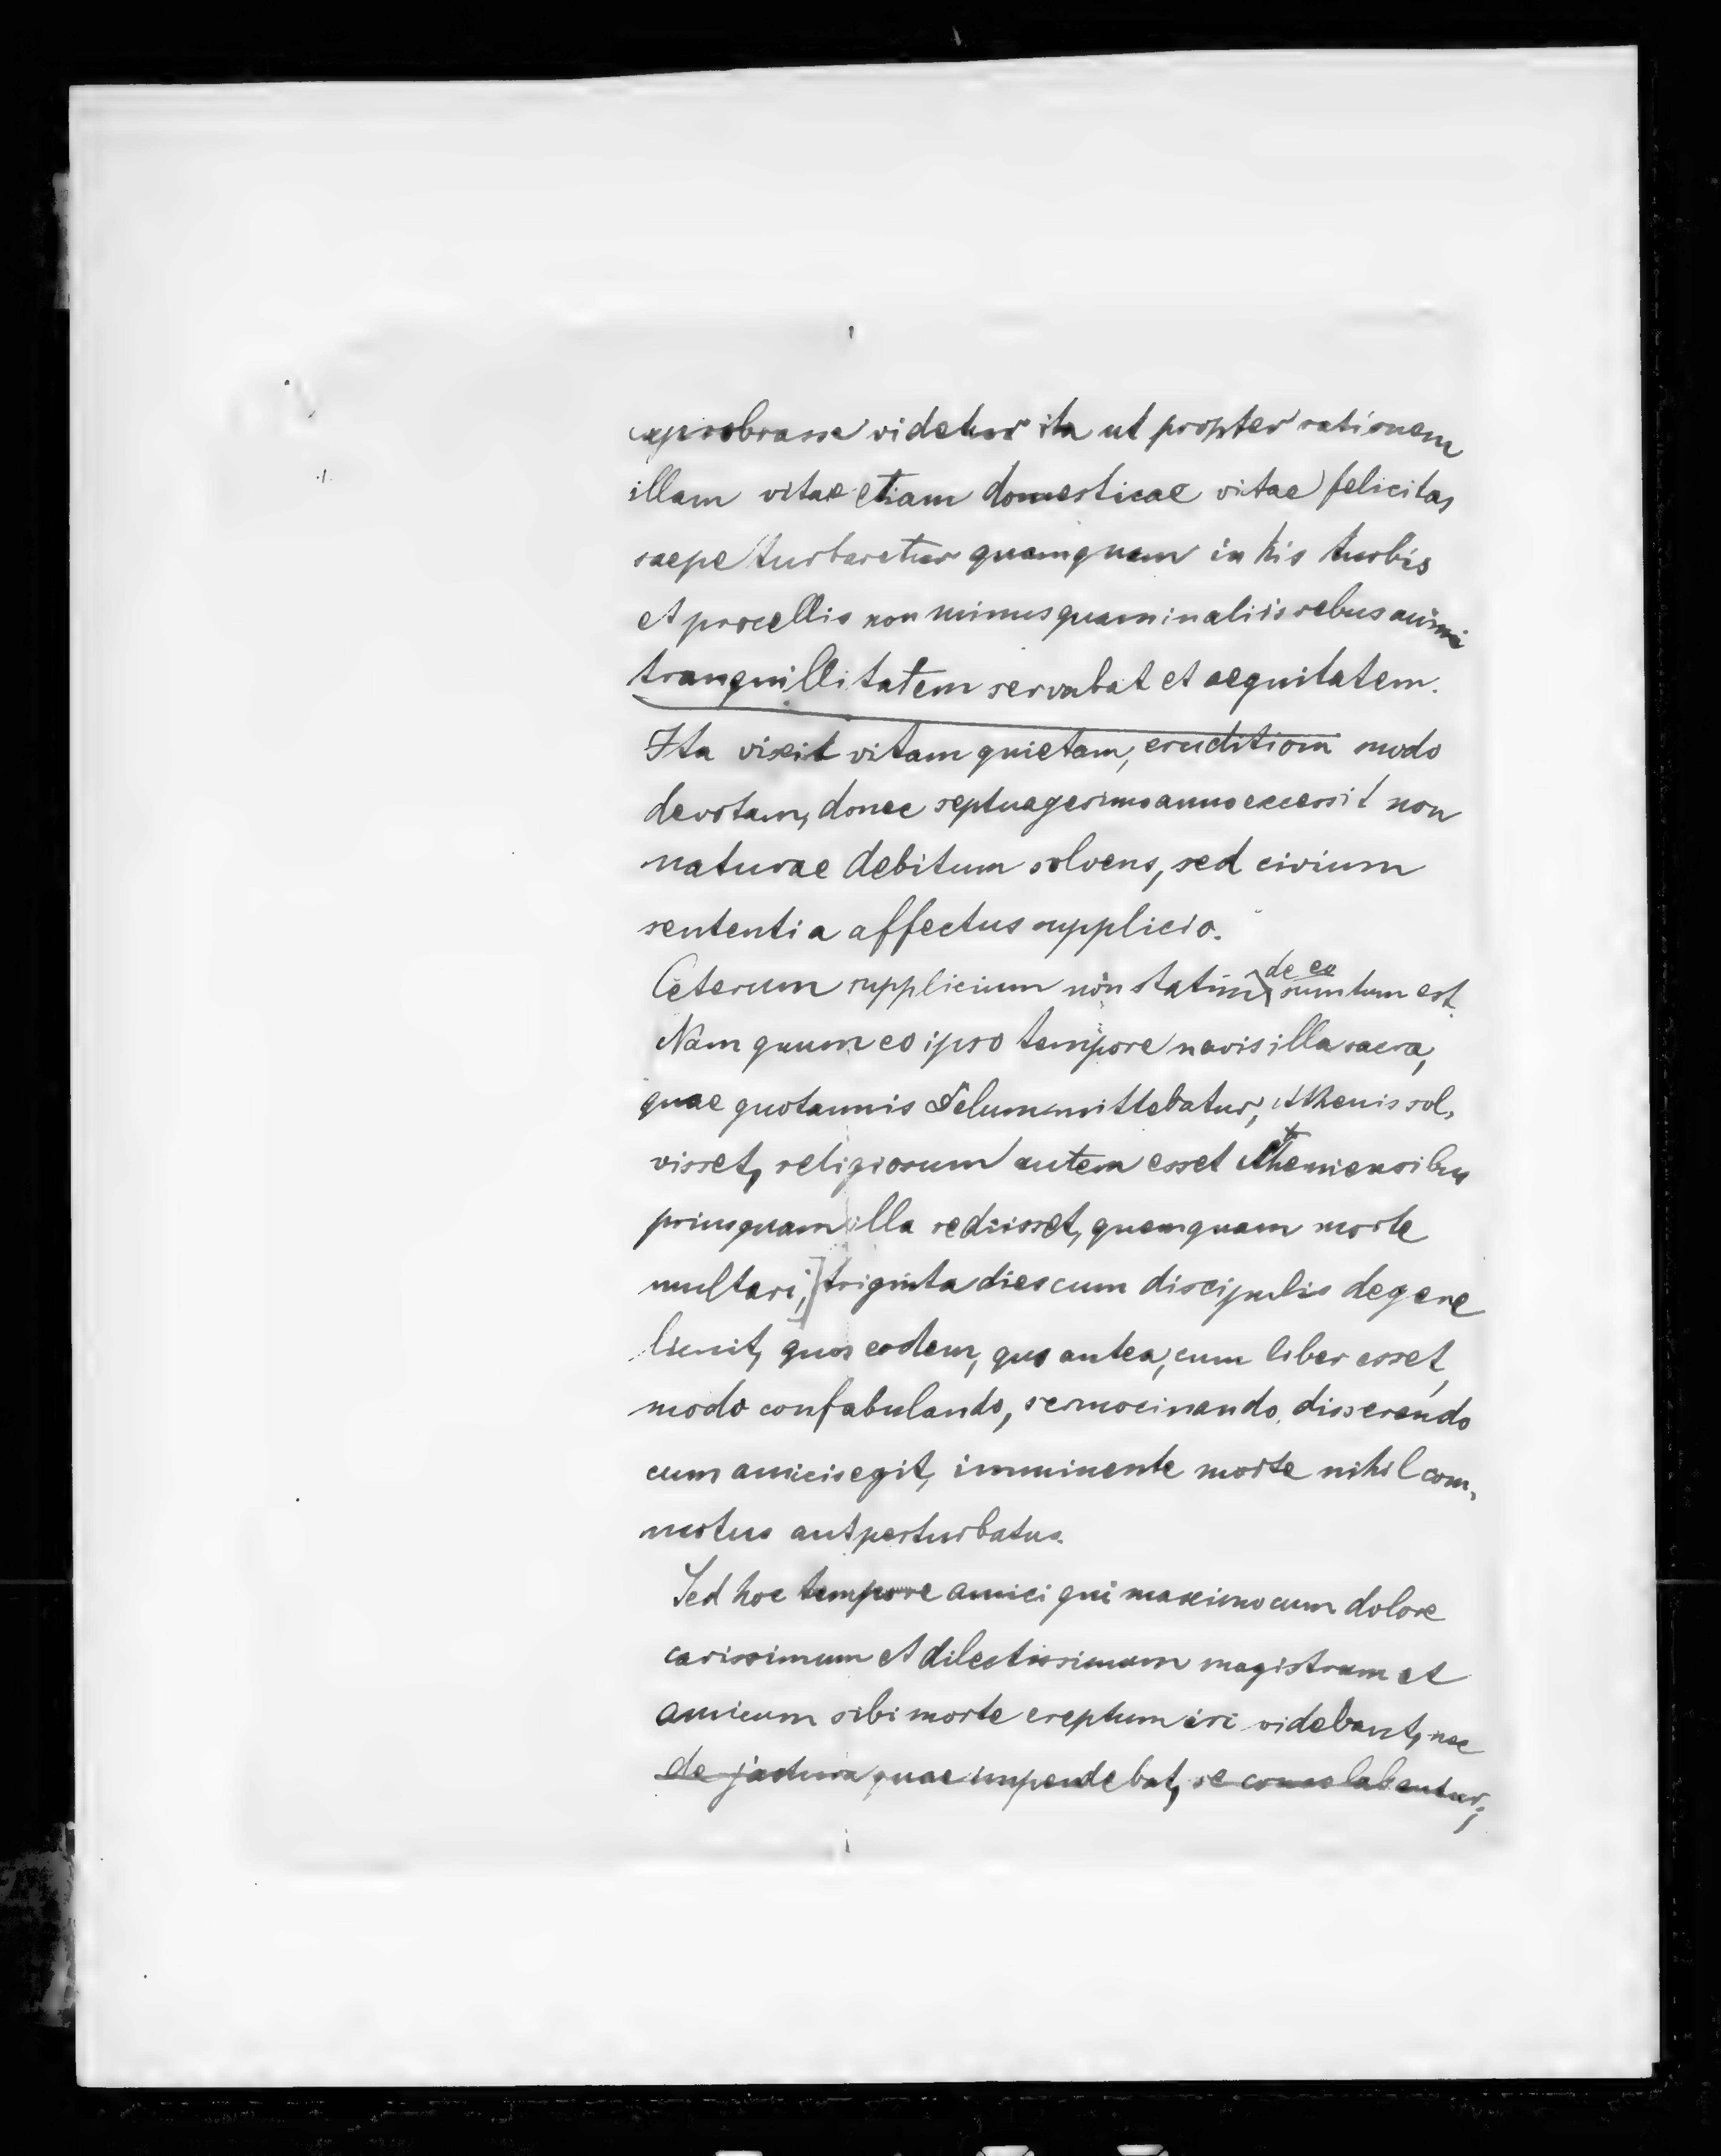 exprobrasse videtur ita ut propter rationem
illam vitae etiam domesticae vitae felicitas
saepe turbaretur quamquam in his turbis
et procellis non minus quam in aliis rebus animi
tranquillitatem servabat et aequitatem.
Ita vixit vitam quietam, eruditioni modo
devotam, donec septuagesimo anno excessit non
naturae debitum solvens, sed civium
sententia affectus supplicio.
Ceterum supplicium non statim de eo sumtum est.
Nam quum eo ipso tempore navis illa sacra,
quae quotannis Delum mittebatur, Athenis sol-
visset, religiosum autem esset Atheniensibus
priusquam illa rediisset, quemquam morte
multari, triginta dies cum discipulis degere
licuit, quos eodem, quo antea, cum liber esset,
modo confabulando, sermocinando, disserendo
cum amicis egit, imminente morte nihil com-
motus aut perturbatus.
Sed hoc tempore amici qui maximo cum dolore
carissimum et dilectissimum magistrum et
amicum sibi morte ereptum iri videbant, nec
de jactura quae impendebat, se consolabantur,